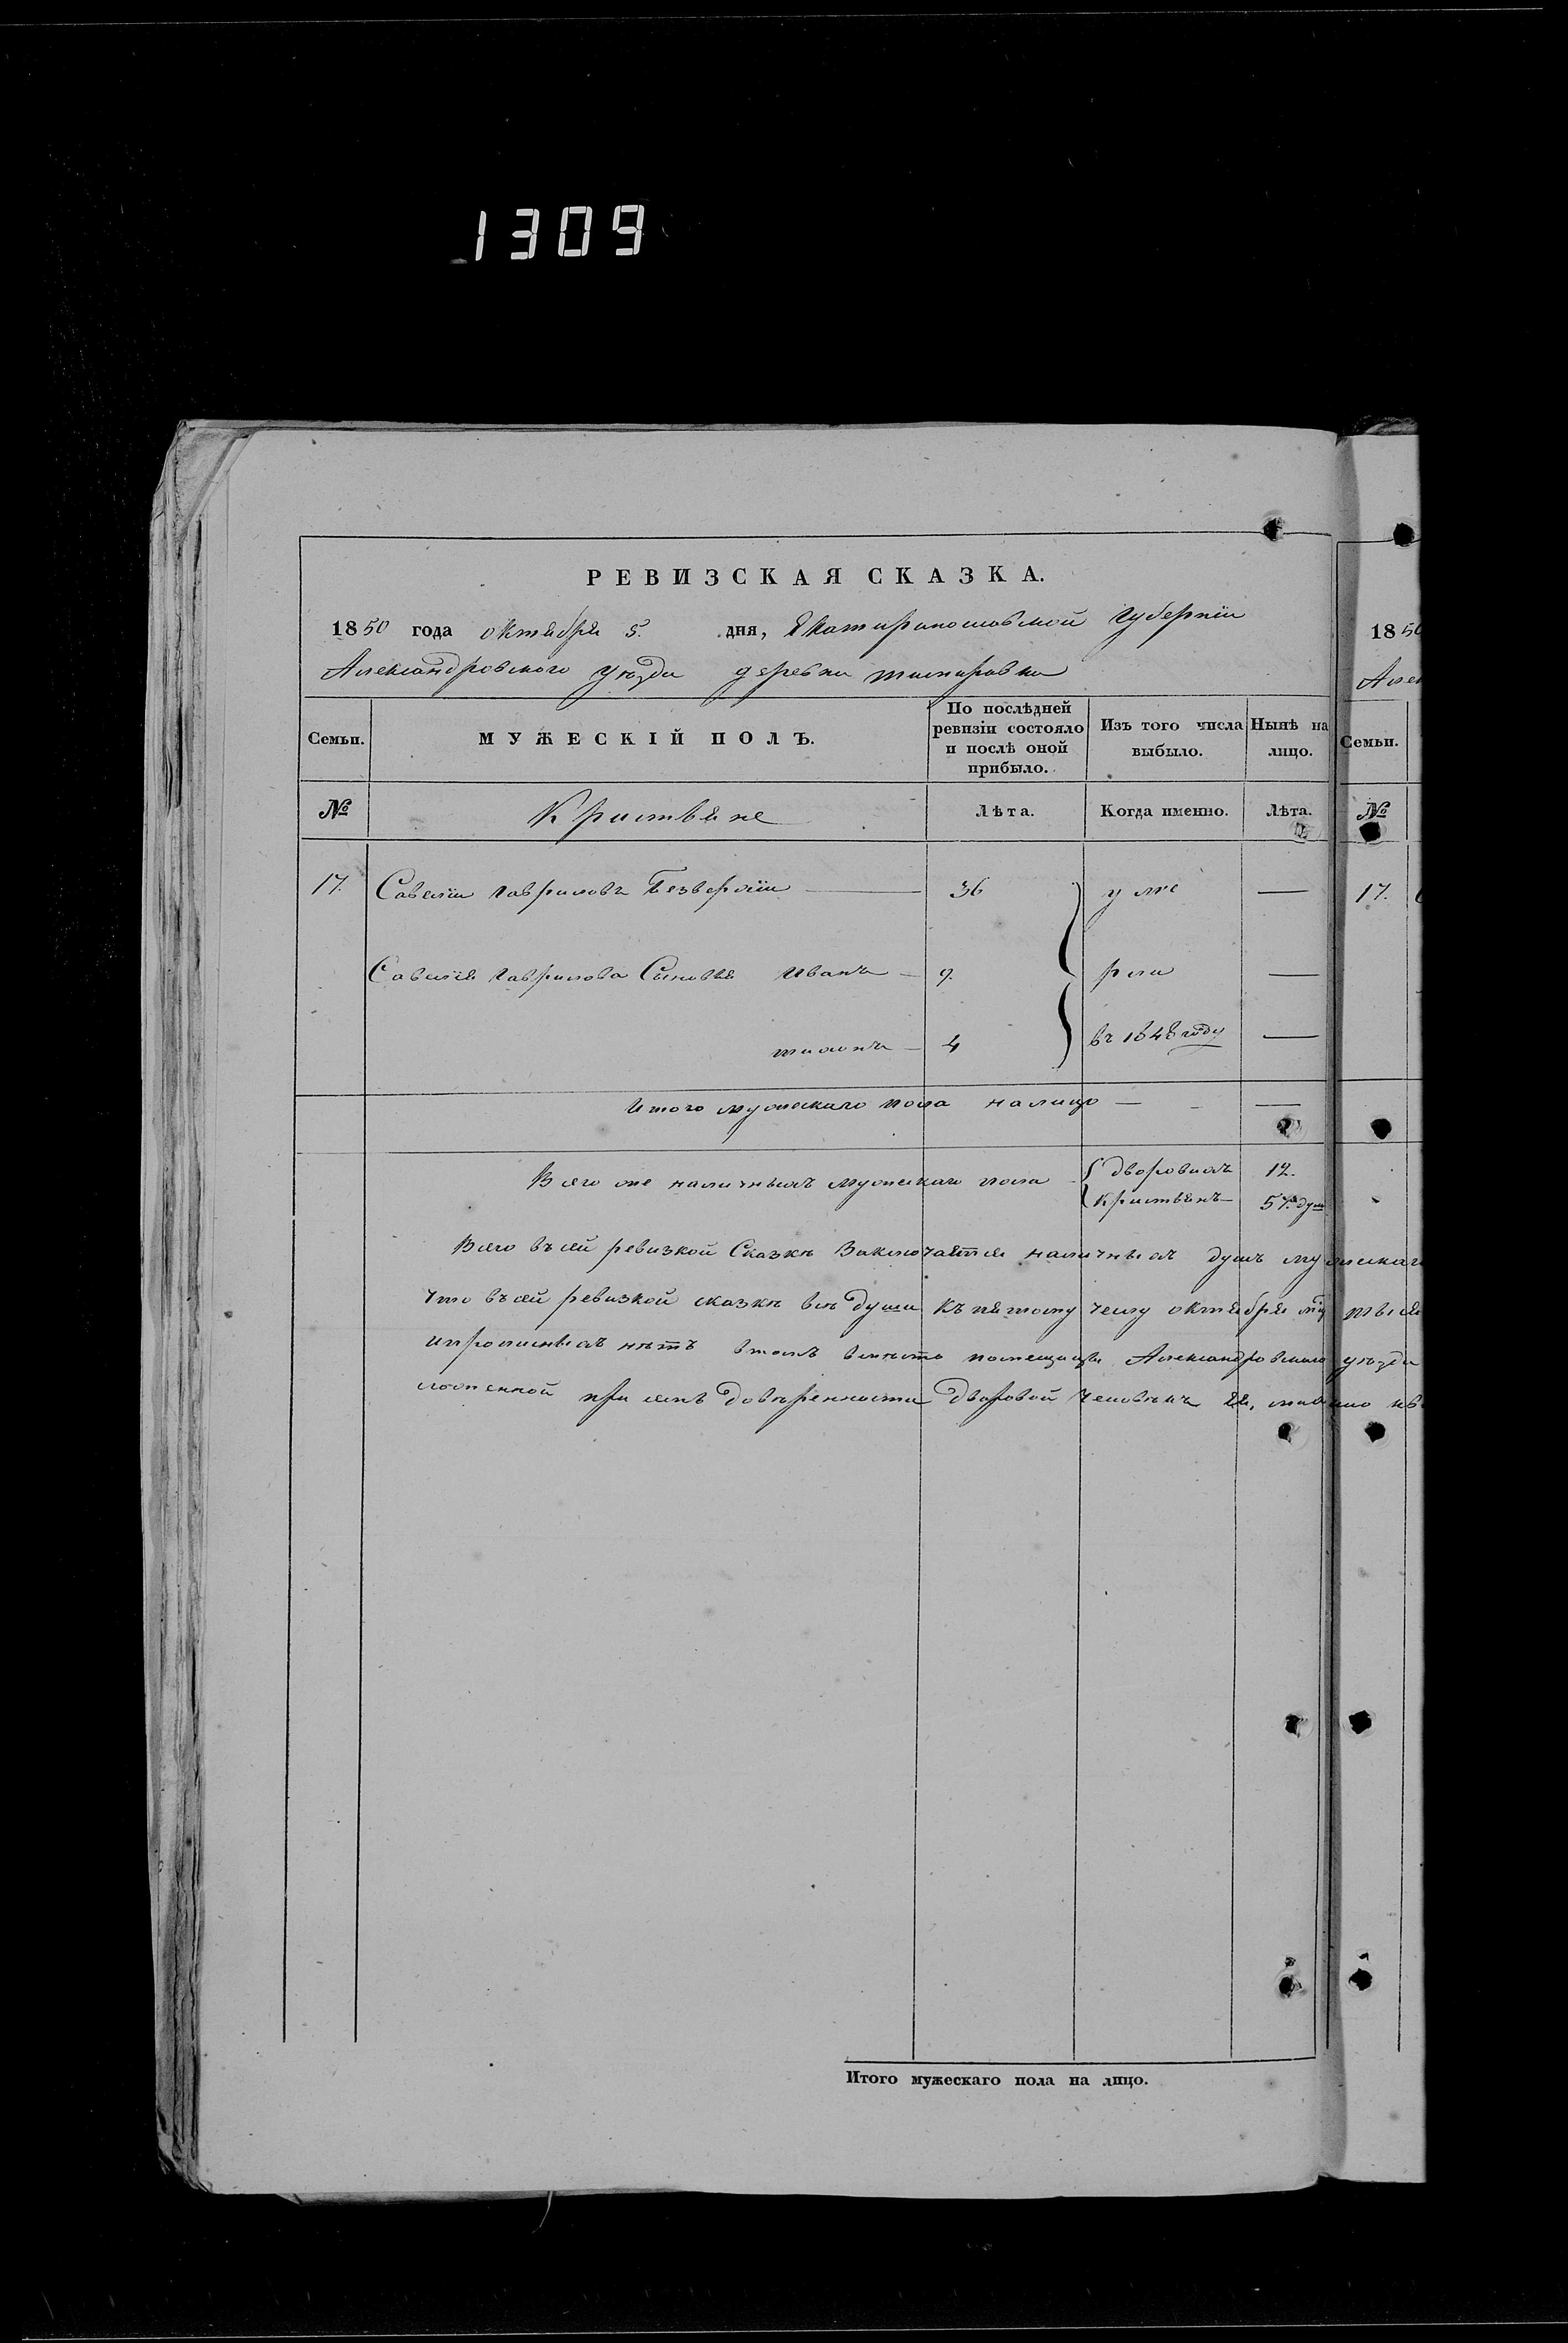 1309
РЕВИЗСКАЯ СКАЗКА.
1850 года октября 5. дня, Екатиринославской Губерніи
Александровского уѣзда деревни
1850
Алек
Семьи.
МУЖЕСКІЙ ПОЛЪ.
По послѣдней ревизіи состояло и послѣ оной прибыло.
Изъ того числа выбыло.
Нынѣ на лицо.
Семьи.
№
Кристьяне
Лѣта.
Когда именно.
Лѣта.
№
17. Савелій Гавриловъ — 36 уме — 17.
Савелія Гаврилова Сыновья Иванъ — 9. рли —
4 въ 1848 году —
Итого мужескаго пола налицо — —
Всего же наличныхъ мужескаго пола { дворовыхъ 12.
Кристьянъ — 57. душ
Всего въ сей ревизкой Сказкѣ Заключается наличныхъ душъ мужескаго
что въ сей ревизкой сказкѣ всѣ души къ пятому числу октября
ипрописныхъ нѣтъ втомъ вмѣсто помещицы Александровскаго уѣзда
при семъ довѣренности Дворовой человѣкъ Ея,
Итого мужескаго пола на лицо.